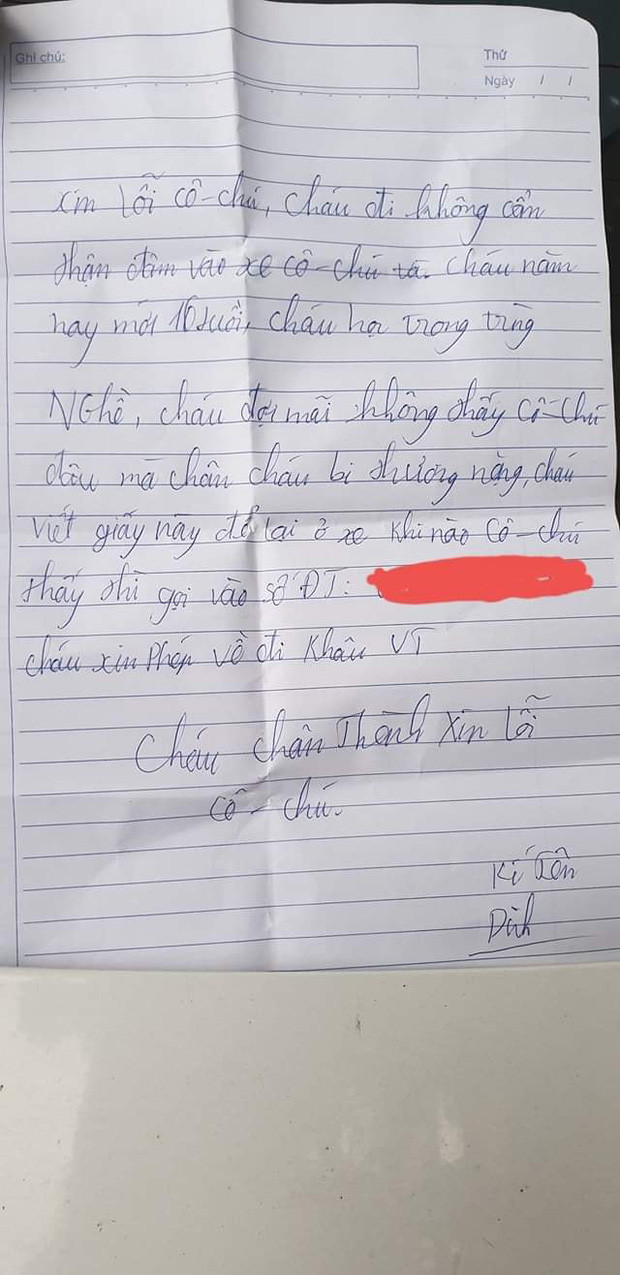 Ghi chú:
Thứ
Ngày / /
xin lỗi cô-chú, cháu đi không cẩn
thận đâm vào xe cô-chú và. cháu năm
nay mới 16 tuổi, cháu học trong trường
Nghề, cháu đợi mãi không thấy cô-chú
đâu mà chân cháu bị thương nặng, cháu
viết giấy này để lại ở xe khi nào cô-chú
thấy thì gọi vào số ĐT:
cháu xin phép về đi khâu VT
Cháu chân Thành xin lỗi
cô - chú.
Kí tên